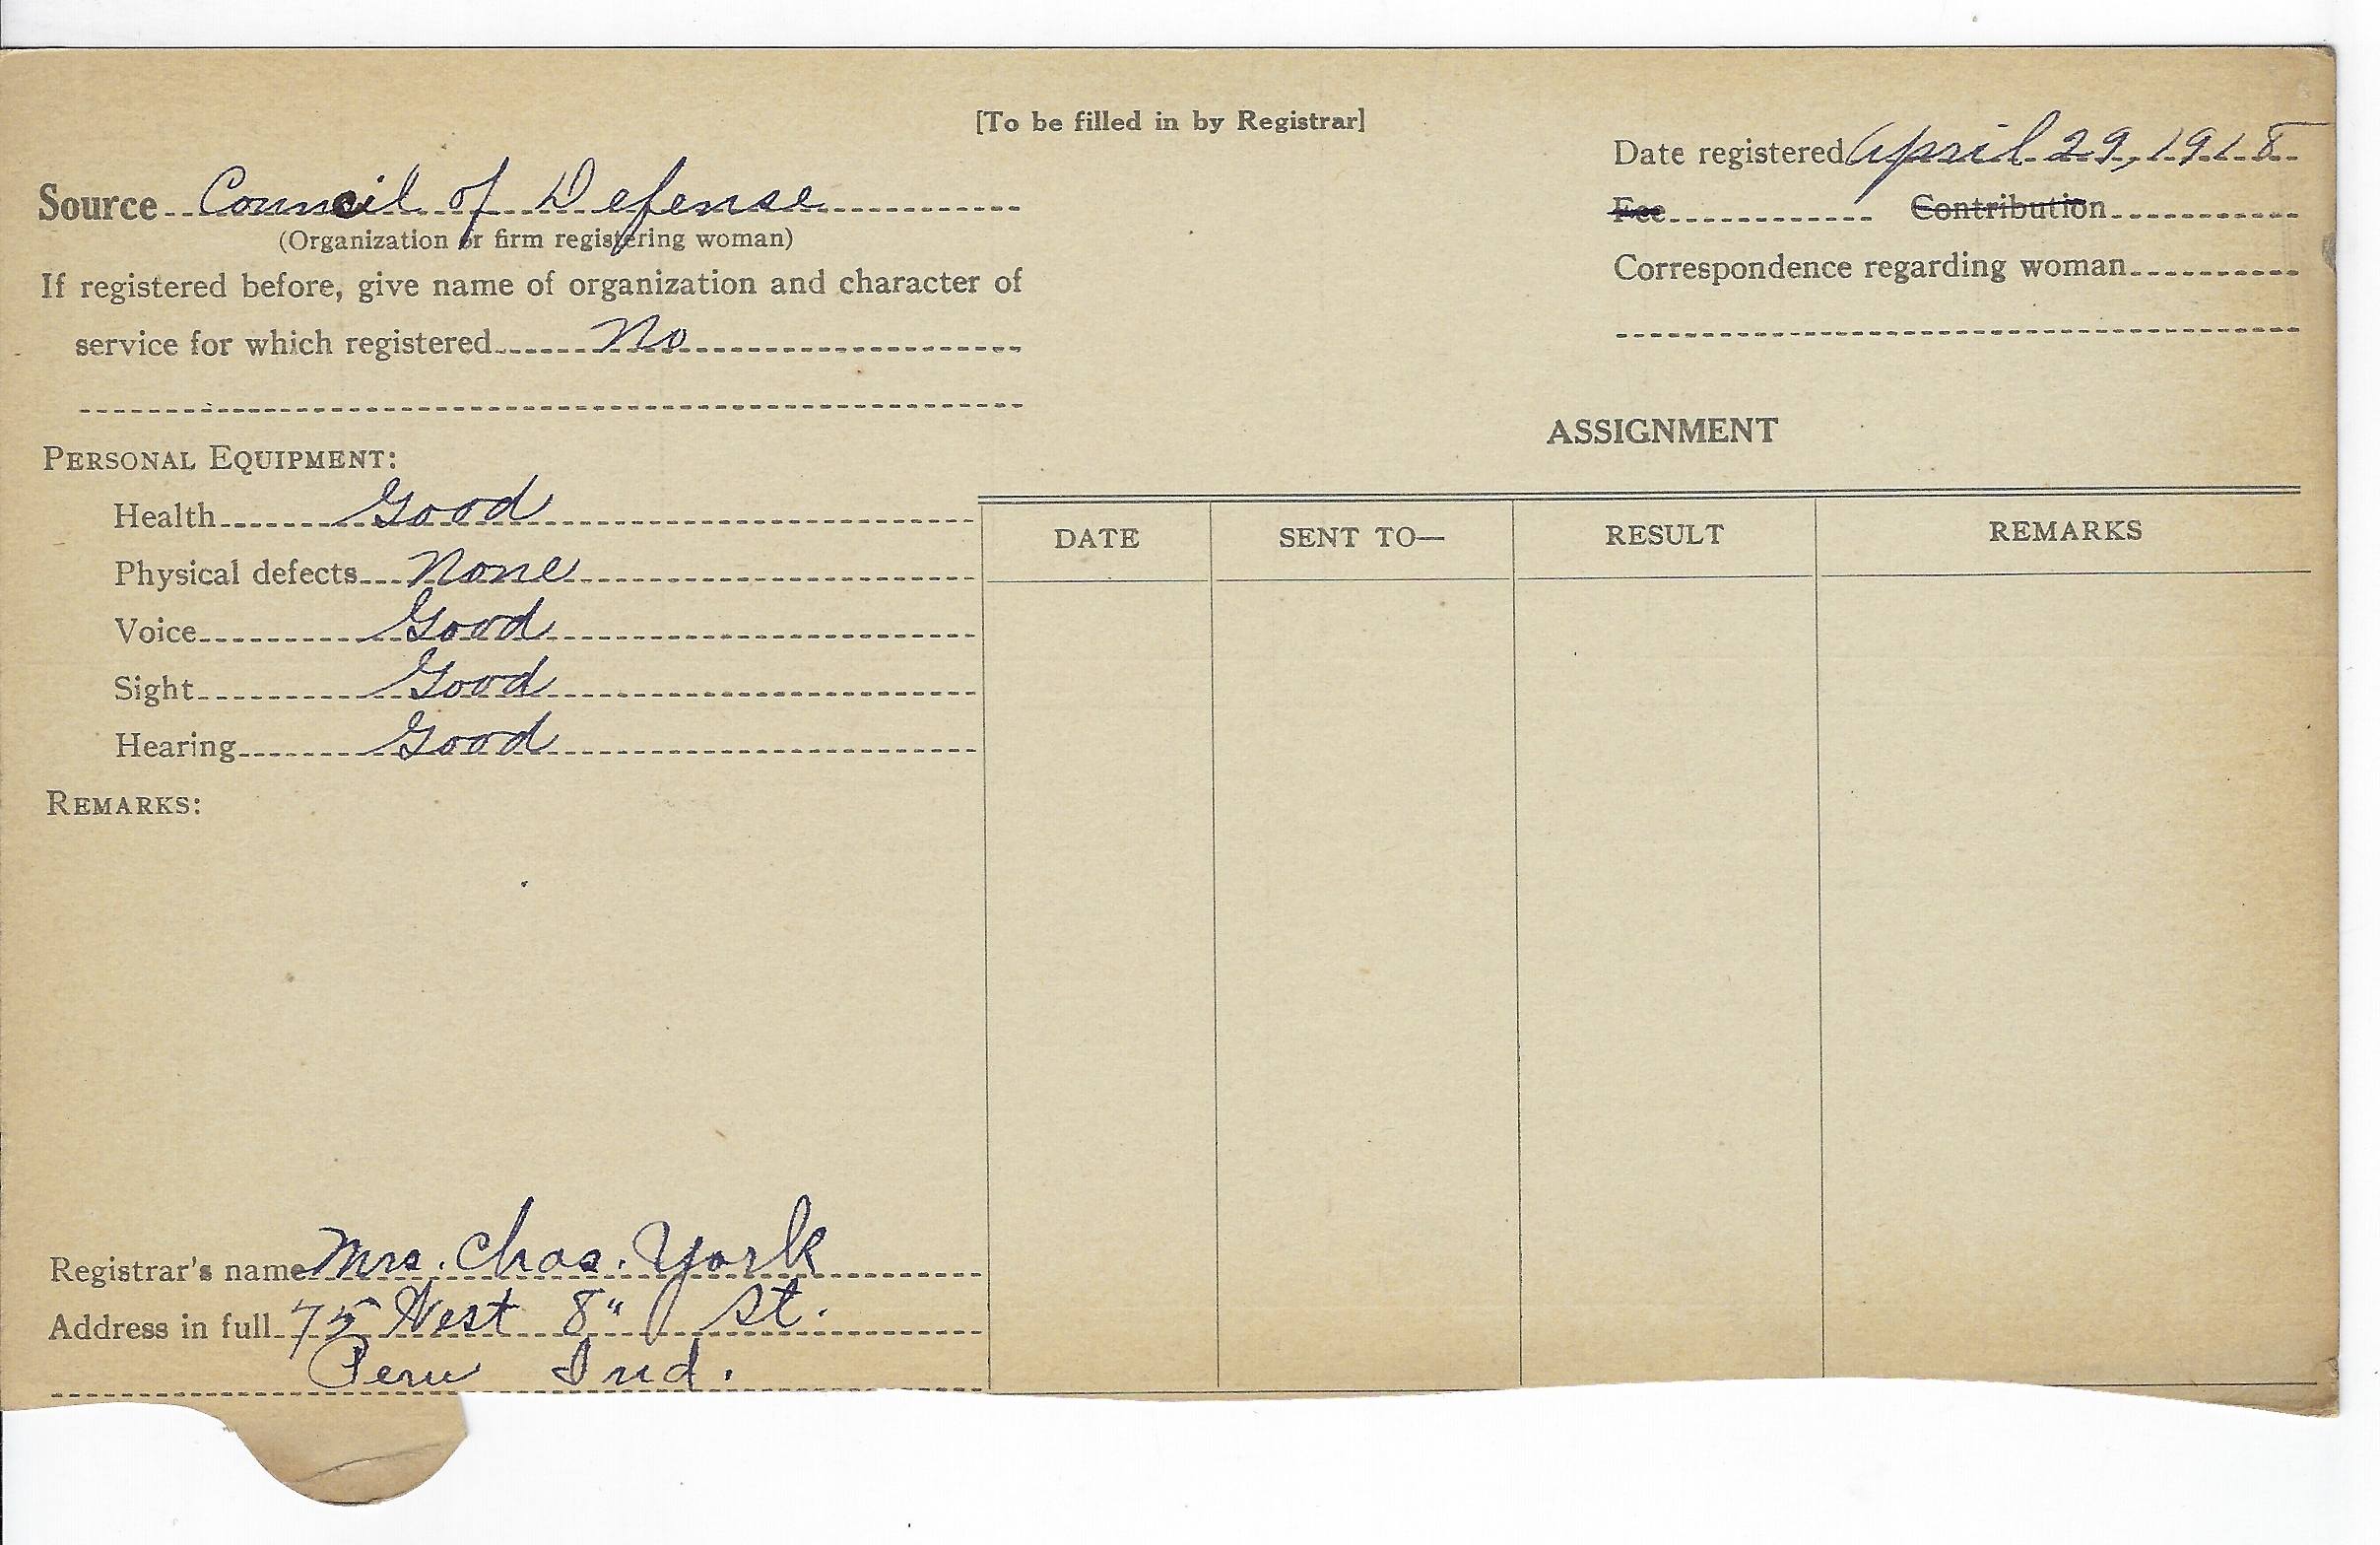 [To be filled in by Registrar]
Date registered April 29, 1918
Source Council of Defense
Fee Contribution
(Organization or firm registering woman)
Correspondence regarding woman
If registered before, give name of organization and character of
service for which registered No
ASSIGNMENT
PERSONAL EQUIPMENT:
Health Good
DATE SENT TO— RESULT REMARKS
Physical defects None
Voice Good
Sight Good
Hearing Good
REMARKS:
Registrar's name Mrs. Chas. York
Address in full 75 West 8" St.
Peru Ind.